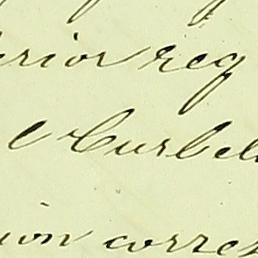 erior reg
e Curbel
ion corres